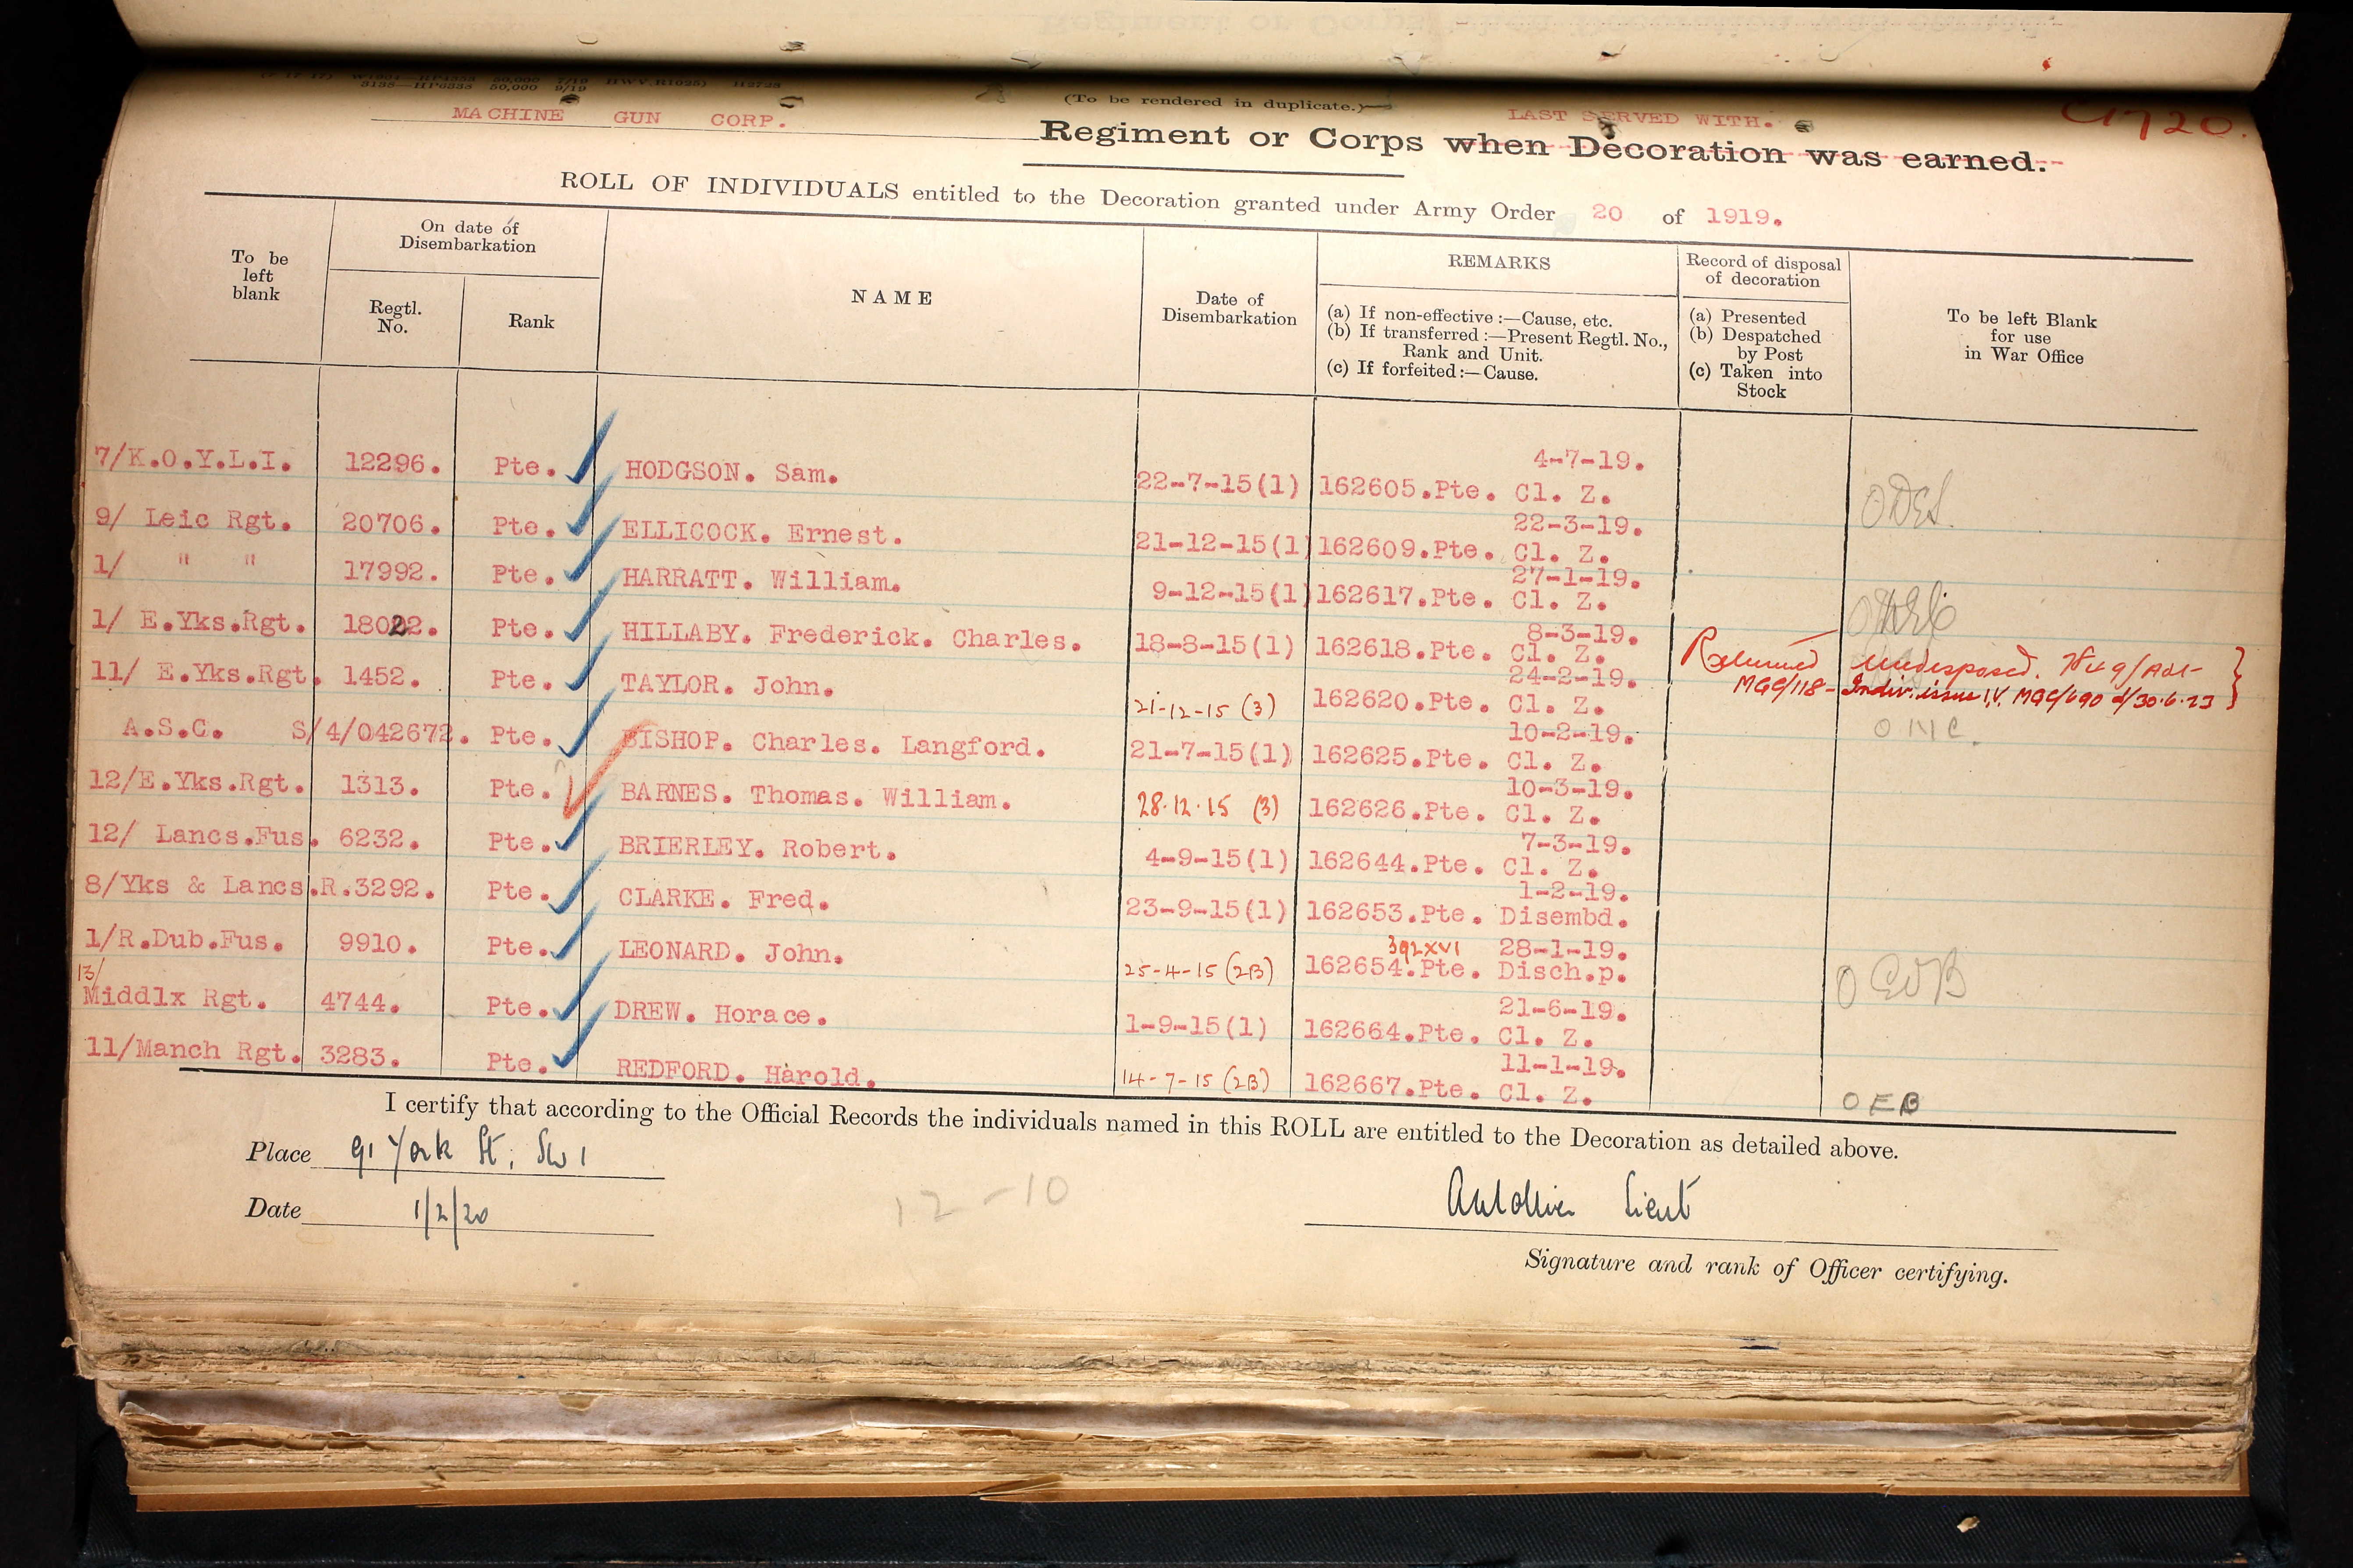 50,000 7/19 HWV.R1025) H2728
50,000 9/19
(To be rendered in duplicate.)
MACHINE GUN CORP. LAST SERVED WITH.
Regiment or Corps when Decoration was earned.
ROLL OF INDIVIDUALS entitled to the Decoration granted under Army Order 20 of 1919.
To be left blank
On date of Disembarkation
Regtl. No.
Rank
NAME
Date of Disembarkation
REMARKS
(a) If non-effective :—Cause, etc.
(b) If transferred :—Present Regtl. No., Rank and Unit.
(c) If forfeited :—Cause.
Record of disposal of decoration
(a) Presented
(b) Despatched by Post
(c) Taken into Stock
To be left Blank for use in War Office
7/K.O.Y.L.I. 12296. Pte. HODGSON. Sam. 22-7-15(1) 162605.Pte. 4-7-19. Cl. Z.
9/ Leic Rgt. 20706. Pte. ELLICOCK. Ernest. 21-12-15(1) 162609.Pte. 22-3-19. Cl. Z.
1/ " " 17992. Pte. HARRATT. William. 9-12-15(1) 162617.Pte. 27-1-19. Cl. Z.
1/ E.Yks.Rgt. 18022. Pte. HILLABY. Frederick. Charles. 18-8-15(1) 162618.Pte. 8-3-19. Cl. Z.
11/ E.Yks.Rgt. 1452. Pte. TAYLOR. John. 21-12-15 (3) 162620.Pte. 24-2-19. Cl. Z. Returned undisposed.
MGC/118- Indiv. issue I.V. MGC/690 d/30.6.23
A.S.C. S/4/042672. Pte. BISHOP. Charles. Langford. 21-7-15(1) 162625.Pte. 10-2-19. Cl. Z.
12/E.Yks.Rgt. 1313. Pte. BARNES. Thomas. William. 28.12.15 (3) 162626.Pte. 10-3-19. Cl. Z.
12/ Lancs.Fus. 6232. Pte. BRIERLEY. Robert. 4-9-15(1) 162644.Pte. 7-3-19. Cl. Z.
8/Yks & Lancs.R.3292. Pte. CLARKE. Fred. 23-9-15(1) 162653.Pte. 1-2-19. Disembd.
1/R.Dub.Fus. 9910. Pte. LEONARD. John. 25-4-15 (2B) 392XVI 162654.Pte. 28-1-19. Disch.p.
13/ Middlx Rgt. 4744. Pte. DREW. Horace. 1-9-15(1) 162664.Pte. 21-6-19. Cl. Z.
11/Manch Rgt. 3283. Pte. REDFORD. Harold. 14-7-15 (2B) 162667.Pte. 11-1-19. Cl. Z. OEB
I certify that according to the Official Records the individuals named in this ROLL are entitled to the Decoration as detailed above.
Place 91 York St, SW1
Date 1/2/20
12-10
Lieut
Signature and rank of Officer certifying.